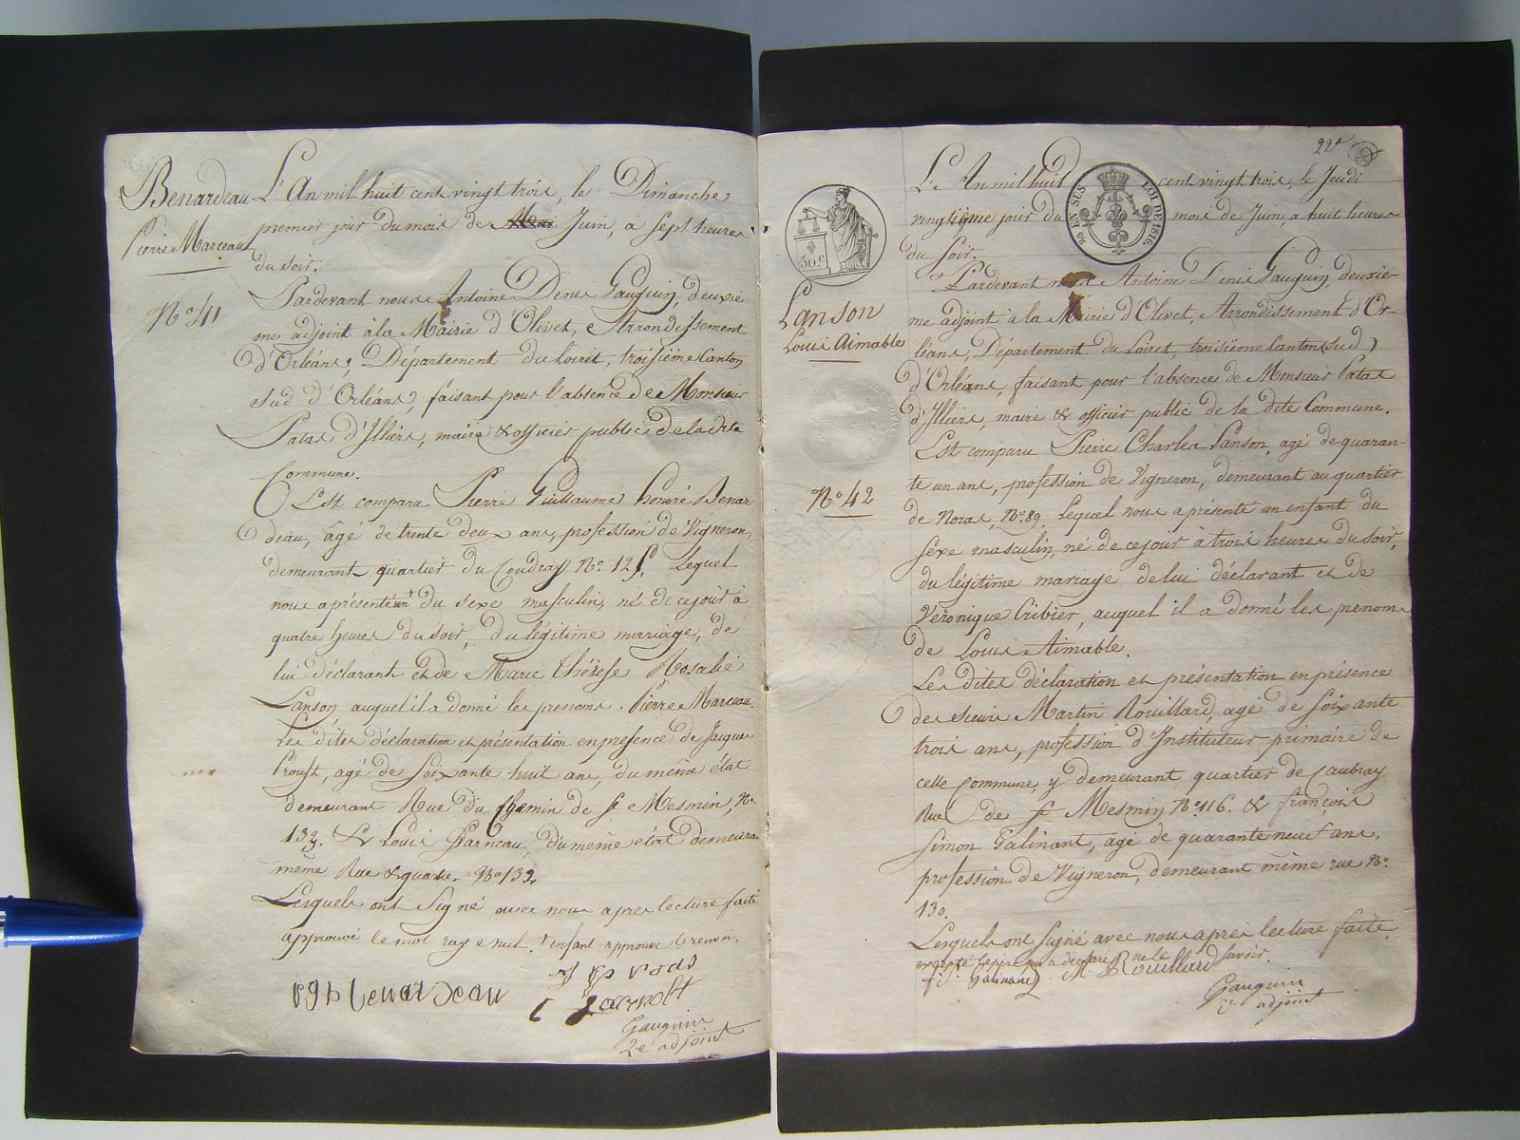 Benardeau
Pierre Marceau
N° 41
L'An mil huit cent vingt trois, le Dimanche
premier jour du mois de Juin, a sept heures
du soir.
Pardevant nous Antoine Denis Gauguin, deuxie-
me adjoint a la Mairie d'Olivet, Arrondissement
d'Orléans, Département du Loiret, troisième Canton
sud d'Orléans, faisant pour l'absence de Monsieur
Patas d'Illiers, maire & officier public de la dite
Commune.
Est comparu Pierre Guillaume honoré Benar
deau, agé de trente deux ans, profession de Vigneron,
demeurant quartier du Coudray N° 125. Lequel
nous a présenté un + du sexe masculin, né de ce jour à
quatre heures du soir, du légitime mariage, de
lui déclarant et de Marie thérèse Rosalie
Lanson auquel il a donné les prenoms. Pierre Marceau.
Les dites déclaration et présentation en présence de Jacques
Proust, agé de soixante huit ans, du même état
demeurant Rue du chemin de St Mesmin, N°
132. & Louis Garneau, du même état demeurant
même Rue & quartier. N° 139.
Lesquels ont Signé avec nous apres lecture faite
approuvé le mot rayé nul. + enfant approuvé le renvoi.
Benardeau
Gauguin
2e adjoint
22e
Lanson
Louis Aimable
N° 42
30 c
LOI DE 1816
L'An mil huit cent vingt trois, le Jeudi
vingtième jour du mois de Juin, a huit heures
du soir.
Pardevant nous Antoine Denis Gauguin, deuxie-
me adjoint à la Mairie d'Olivet, Arrondissement d'Or-
léans, Département du Loiret, troisième Canton (sud)
d'Orléans, faisant pour l'absence de Monsieur Patas
d'Illiers, maire & officier public de la dite Commune.
Est comparu Pierre Charles Lanson, agé de quaran-
te un ans, profession de Vigneron, demeurant au quartier
de Noras, N° 89. Lequel nous a présenté un enfant du
sexe masculin, né de ce jour à trois heures du soir,
du légitime mariage de lui déclarant et de
Véronique Cribier, auquel il a donné les prenoms
de Louis Aimable.
Les dites déclaration et présentation en présence
des sieurs Martin Rouillard, agé de soixante
trois ans, profession d'Instituteur primaire de
cette commune, y demeurant quartier de Caubray
Rue de St Mesmin N° 116. & françois
Simon Galinant, agé de quarante neuf ans,
profession de Vigneron, demeurant même rue N°
130.
Lesquels ont signé avec nous apres lecture faite
excepté le père qui a déclaré ne le savoir.
Rouillard
Gauguin
2e adjoint